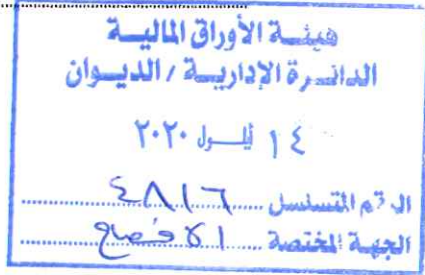 هيئة الأوراق المالية
الدائرة الإدارية / الديوان
١٤ أيلول ٢٠٢٠
الرقم المتسلسل ٤٨١٦
الجهة المختصة الافصاح